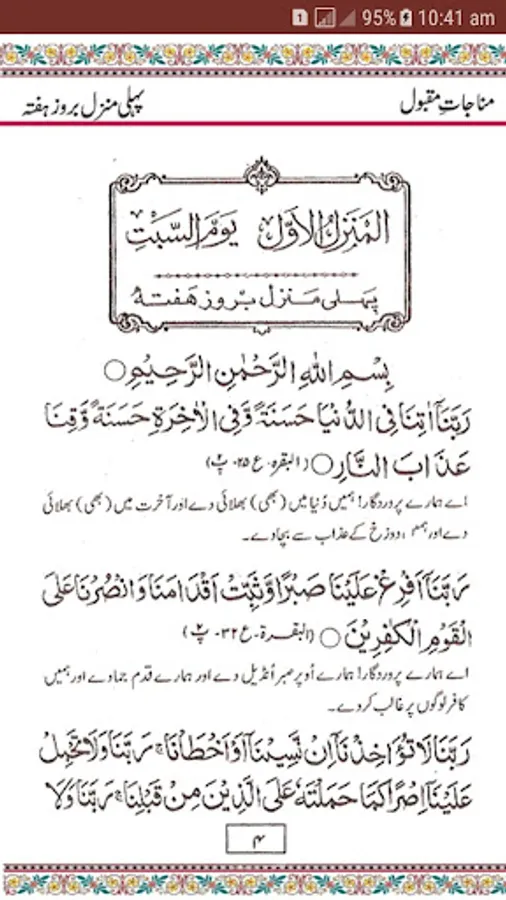 1 95% 10:41 am
مناجاتِ مقبول پہلی منزل بروز ہفتہ
اَلْمَنْزِلُ الْاَوَّلُ يَوْمَ السَّبْتِ
پہلی منزل بروز ہفتہ
بِسْمِ اللهِ الرَّحْمٰنِ الرَّحِيْمِ ○
رَبَّنَآ اٰتِنَا فِى الدُّنْيَا حَسَنَةً وَّفِى الْاٰخِرَةِ حَسَنَةً وَّقِنَا
عَذَابَ النَّارِ ○ (البقرہ۔ ع ۲۵۔ پ ۲)
اے ہمارے پروردگار! ہمیں دُنیا میں (بھی) بھلائی دے اور آخرت میں (بھی) بھلائی
دے اور ہمیں دوزخ کے عذاب سے بچا دے۔
رَبَّنَآ اَفْرِغْ عَلَيْنَا صَبْرًا وَّثَبِّتْ اَقْدَامَنَا وَانْصُرْنَا عَلَى
الْقَوْمِ الْكٰفِرِيْنَ ○ (البقرة۔ ع ۳۲۔ پ ۲)
اے ہمارے پروردگار! ہمارے اُوپر صبر اُنڈیل دے اور ہمارے قدم جما دے اور ہمیں
کافر لوگوں پر غالب کر دے۔
رَبَّنَا لَا تُؤَاخِذْنَآ اِنْ نَّسِيْنَآ اَوْ اَخْطَاْنَا ۚ رَبَّنَا وَلَا تَحْمِلْ
عَلَيْنَآ اِصْرًا كَمَا حَمَلْتَهٗ عَلَى الَّذِيْنَ مِنْ قَبْلِنَا ۚ رَبَّنَا وَلَا
۴